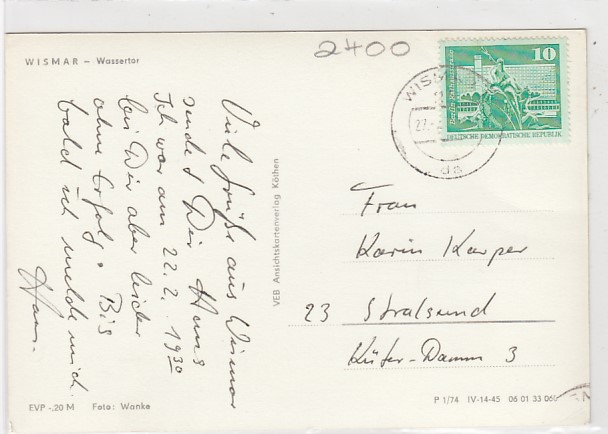 WISMAR – Wassertor
2400
10
Berlin, Rathausstraße
DEUTSCHE DEMOKRATISCHE REPUBLIK
WISM
27.
da
Viele Grüße aus Wismar
sendet Dir Hans
Ich war am 22.2. 19³⁰
bei Dir aber leider
ohne Erfolg. Bis
bald ich melde mich.
Hans.
VEB Ansichtskartenverlag Köthen
Frau
Karin Karper
23 Stralsund
Küter-Damm 3
EVP -,20 M Foto: Wanke
P 1/74 IV-14-45 06 01 33 06